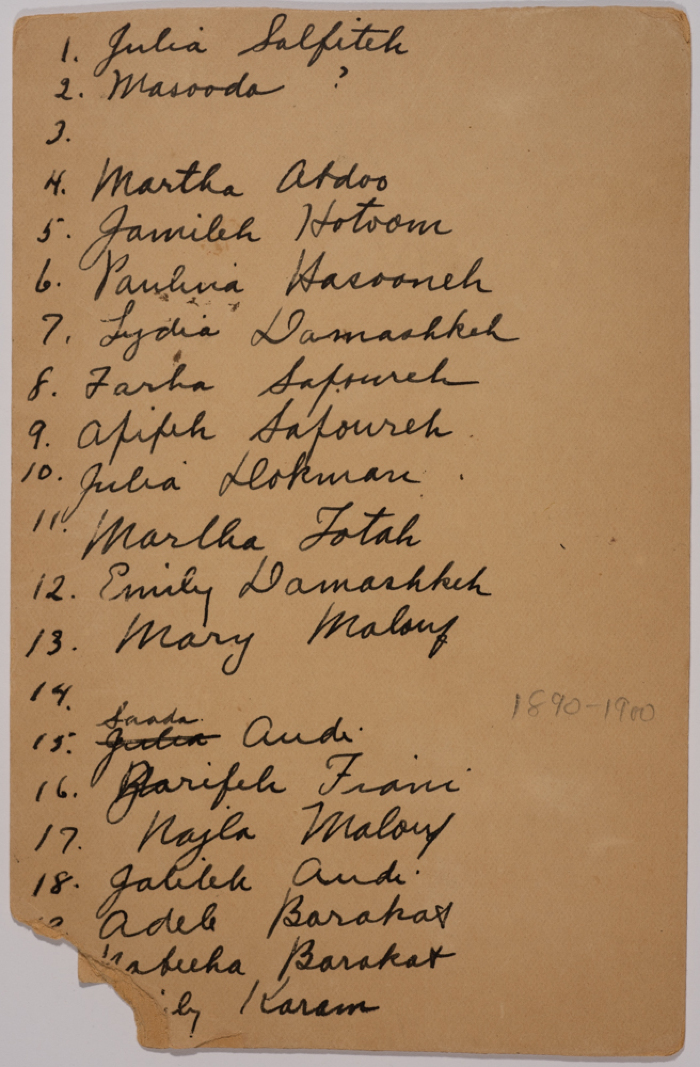 1. Julia Salfiteh
2. Masooda ?
3.
4. Martha Abdoo
5. Jamileh Hotoom
6. Paulina Hasooneh
7. Lydia Damashkeh
8. Farha Safoureh
9. Afifeh Safoureh
10. Julia Dokman
11. Martha Totah
12. Emily Damashkeh
13. Mary Malouf
14.
Saada
15. Julia Audi
16. Frani
17. Najla Malouf
18. Jalileh Audi
Adele Barakat
Barakat
Karam
1890-1900